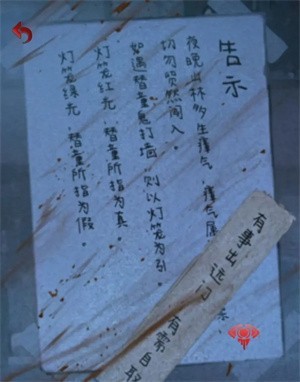 告示
夜晚山林多生瘴气，瘴气属
切勿贸然闯入。
如遇瞽童鬼打墙，则以灯笼为引。
灯笼红光，瞽童所指为真
灯笼绿光，瞽童所指为假。
有事出远门
有需自取